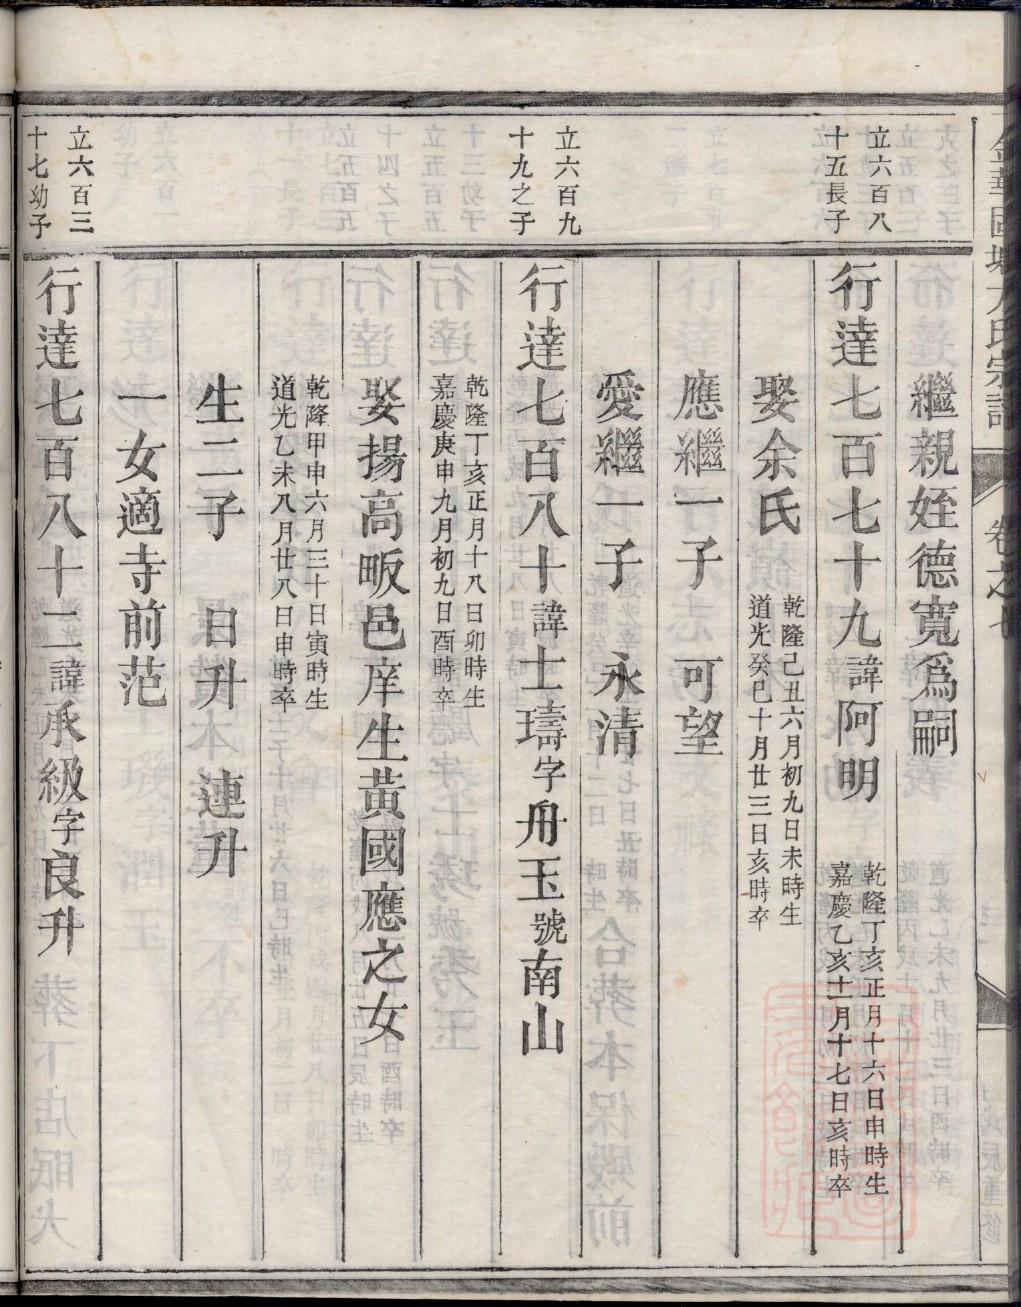 繼親姪德寬爲嗣
立六百八
十五長子
行達七百七十九諱阿明
乾隆丁亥正月十六日申時生
嘉慶乙亥十一月十七日亥時卒
娶余氏
乾隆己丑六月初九日未時生
道光癸巳十月廿三日亥時卒
應繼一子 可望
愛繼一子 永清
立六百九
十九之子
行達七百八十諱士璹字舟玉號南山
乾隆丁亥正月十八日卯時生
嘉慶庚申九月初九日酉時卒
娶揚高畈邑庠生黃國應之女
乾隆甲申六月三十日寅時生
道光乙未八月廿八日申時卒
生二子 日升 連升
一女適寺前范
立六百三
十七幼子
行達七百八十二諱承級字良升